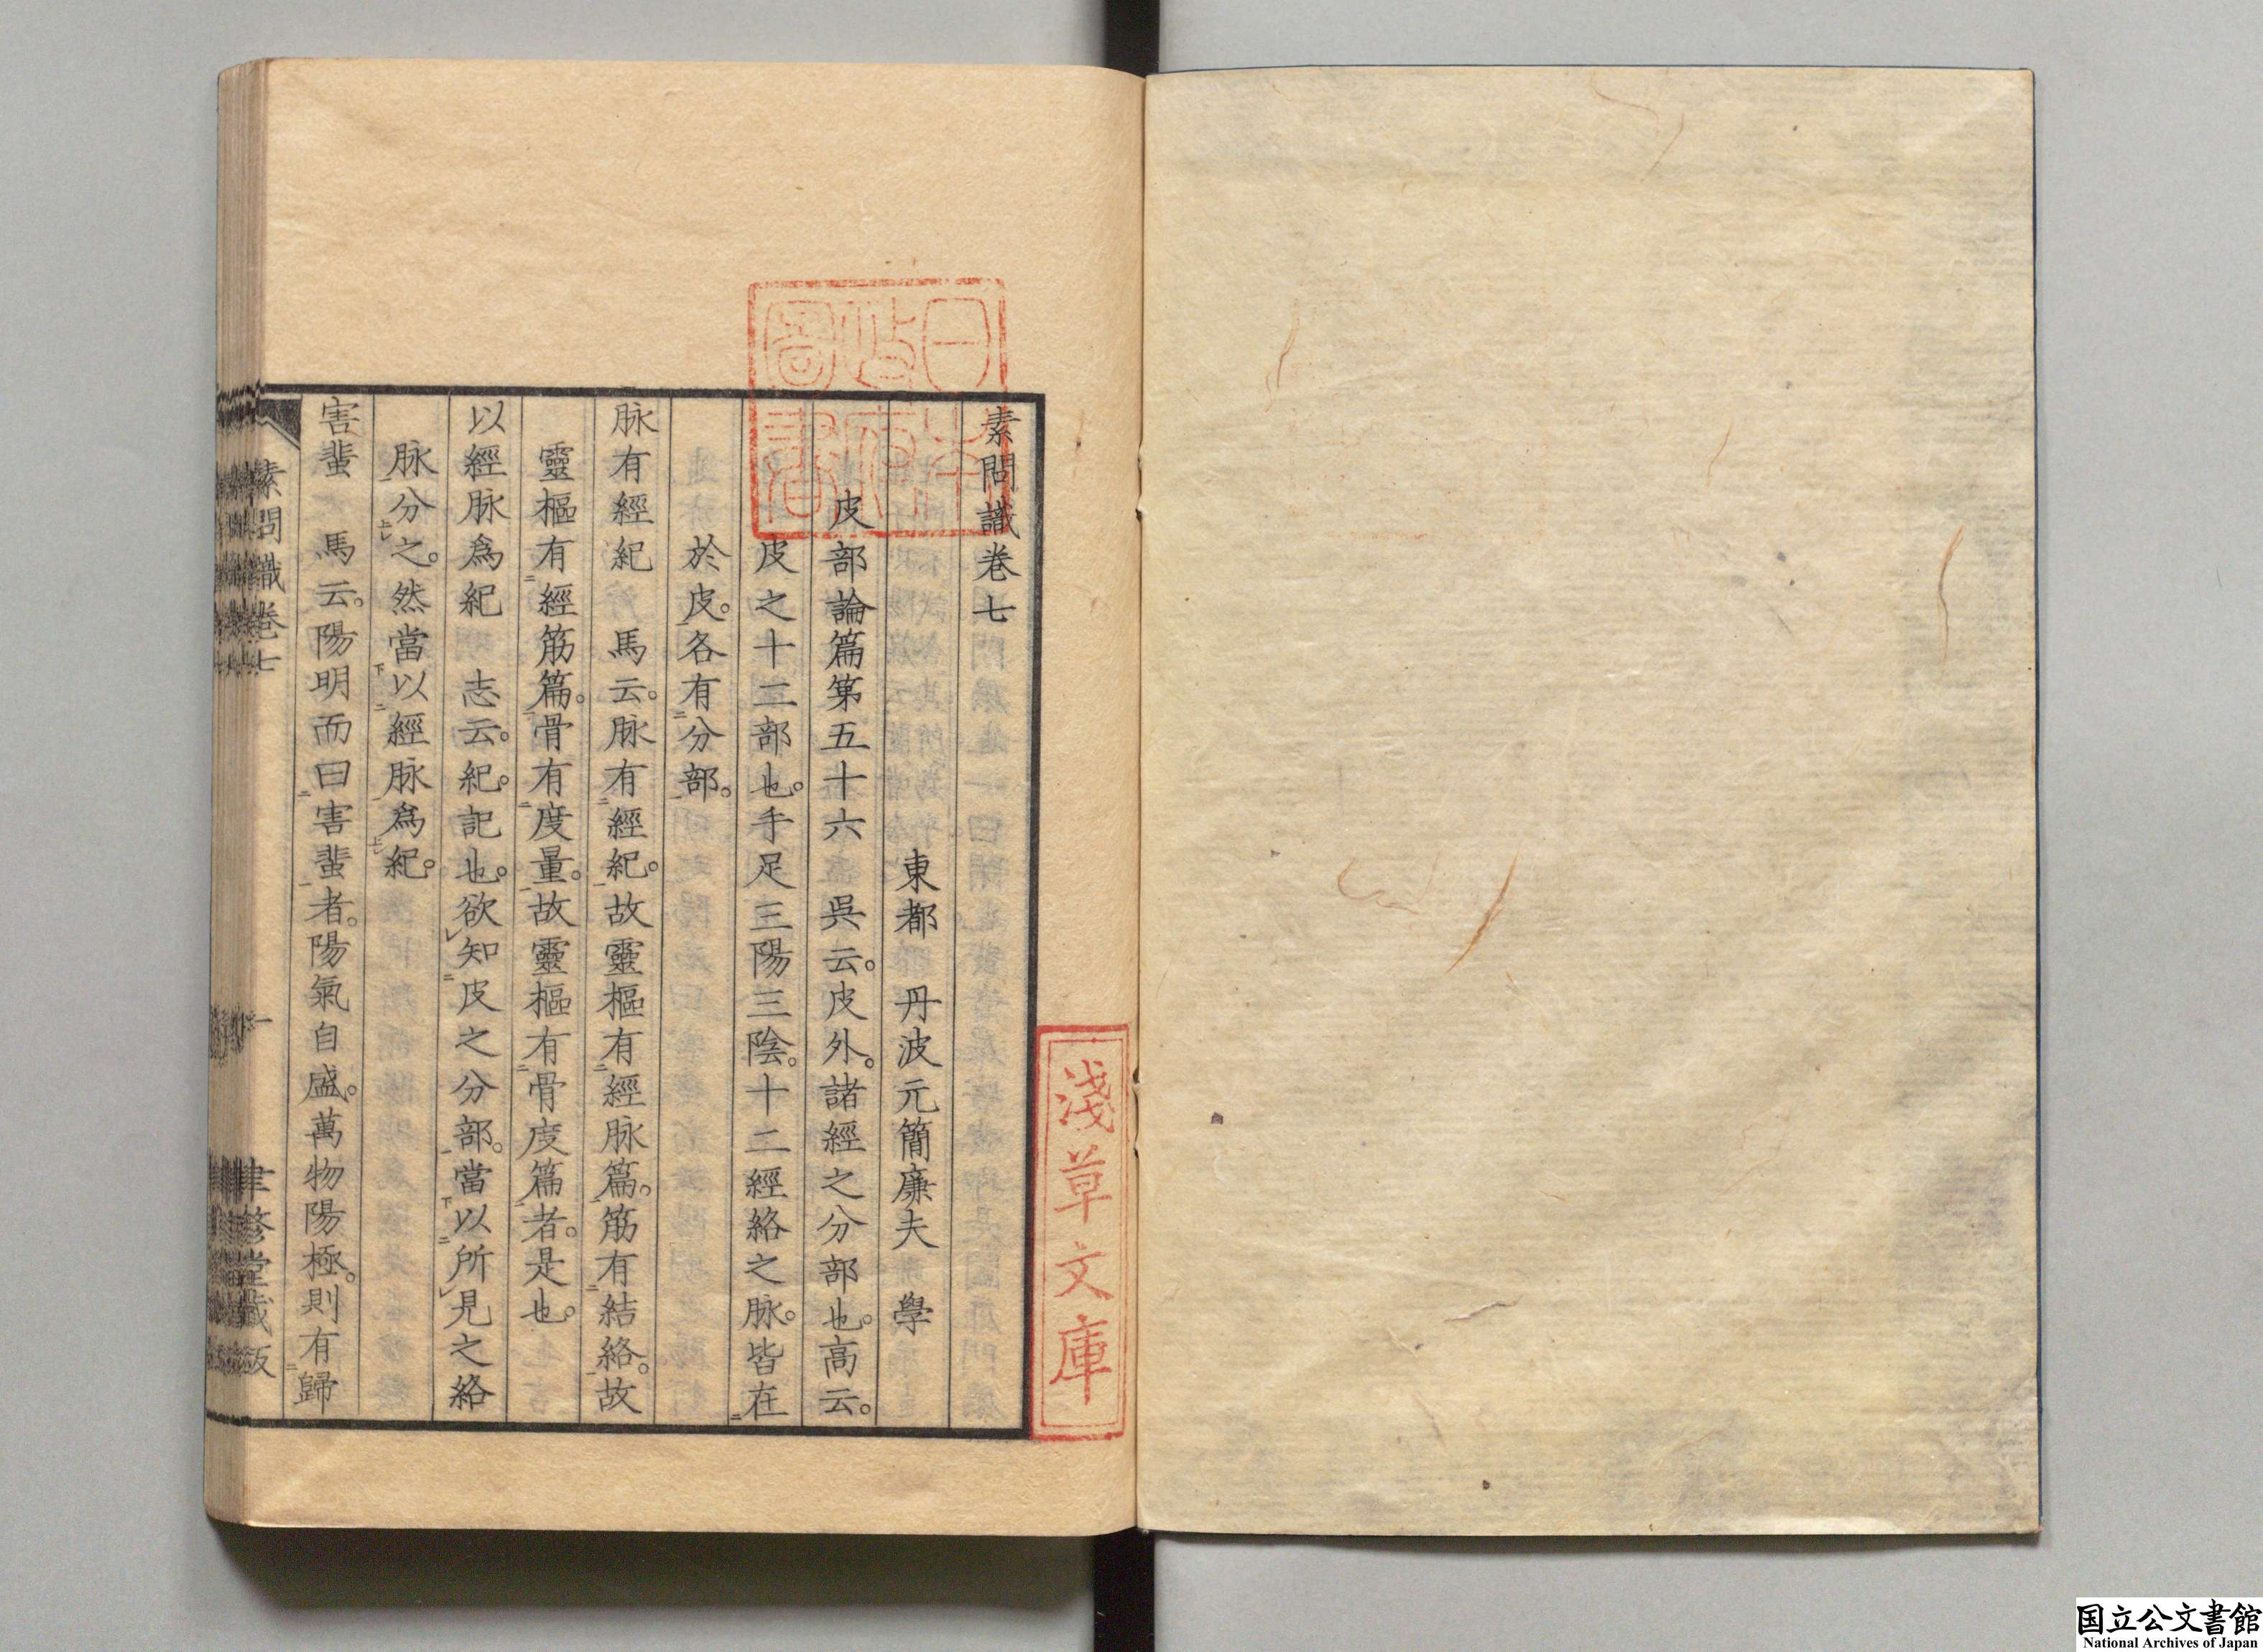 素問識卷七
東都 丹波元簡廉夫 學
皮部論篇第五十六 吳云。皮外。諸經之分部也。高云。
皮之十二部也。手足三陽三陰。十二經絡之脉。皆在
於皮。各有分部。
脉有經紀 馬云。脉有經紀。故靈樞有經脉篇。筋有結絡。故
靈樞有經筋篇。骨有度量。故靈樞有骨度篇者。是也。
以經脉爲紀 志云。紀。記也。欲知皮之分部。當以所見之絡
脉分之。然當以經脉爲紀。
害蜚 馬云。陽明而曰害蜚者。陽氣自盛。萬物陽極。則有歸
素問識卷七
一
聿修堂藏版
淺草文庫
国立公文書館
National Archives of Japan